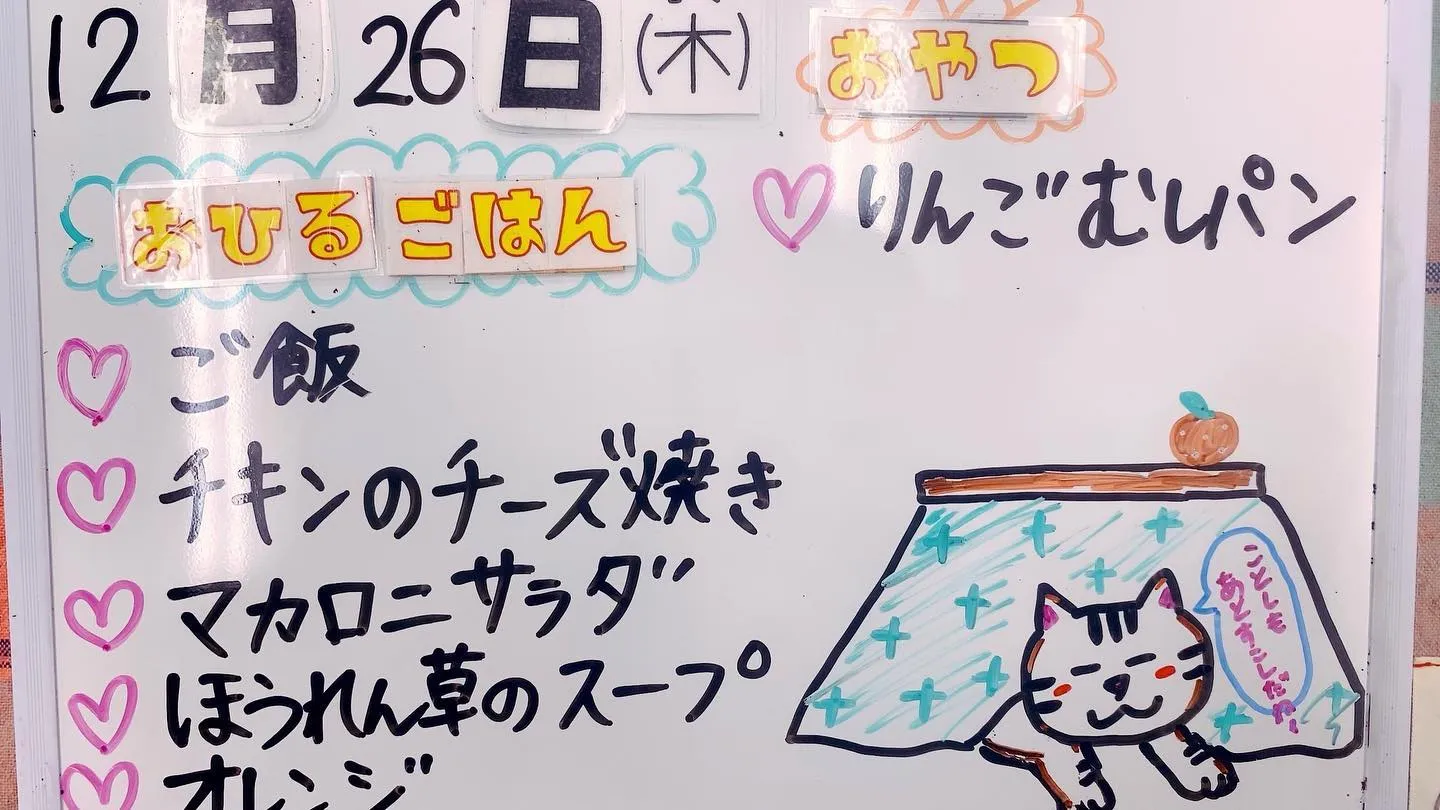 12月26日(木)
おひるごはん
ご飯
チキンのチーズ焼き
マカロニサラダ
ほうれん草のスープ
オレンジ
おやつ
りんごむしパン
ことしも
あとすこしだね